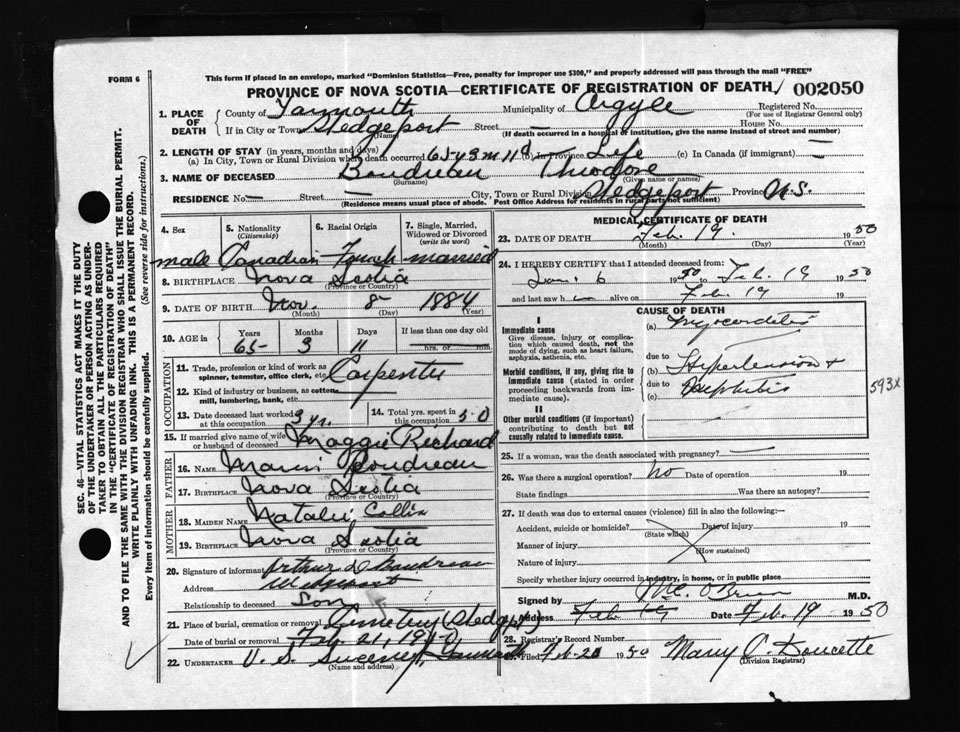 FORM 6
This form if placed in an envelope, marked "Dominion Statistics—Free, penalty for improper use $300," and properly addressed will pass through the mail "FREE"
PROVINCE OF NOVA SCOTIA—CERTIFICATE OF REGISTRATION OF DEATH 002050
1. PLACE OF DEATH County of Yarmouth Municipality of Argyle Registered No.
(For use of Registrar General only)
If in City or Town Wedgeport Street — House No.
(Name) (If death occurred in a hospital or institution, give the name instead of street and number)
2. LENGTH OF STAY (in years, months and days)
(a) In City, Town or Rural Division where death occurred 65 y 3 m 11 d (b) in Province Life (c) In Canada (if immigrant) —
3. NAME OF DECEASED Boudreau Theodore
(Surname) (Given name or names)
RESIDENCE No. — Street — City, Town or Rural Division Wedgeport Province N.S.
(Residence means usual place of abode. Post Office Address for residents in rural parts not sufficient)
4. Sex 5. Nationality (Citizenship) 6. Racial Origin 7. Single, Married, Widowed or Divorced (write the word)
male Canadian French married
8. BIRTHPLACE Nova Scotia
(Province or Country)
9. DATE OF BIRTH Nov. 8 1884
(Month) (Day) (Year)
10. AGE in Years Months Days If less than one day old
65 3 11 hrs. or min.
OCCUPATION
11. Trade, profession or kind of work as spinner, teamster, office clerk, etc. Carpenter
12. Kind of industry or business, as cotton mill, lumbering, bank, etc.
13. Date deceased last worked at this occupation 3 yrs. 14. Total yrs. spent in this occupation 50
15. If married give name of wife or husband of deceased Maggie Richard
FATHER
16. NAME Boudreau
17. BIRTHPLACE Nova Scotia
(Province or Country)
MOTHER
18. MAIDEN NAME Natalie
19. BIRTHPLACE Nova Scotia
(Province or Country)
20. Signature of informant Arthur D Boudreau
Address Wedgeport
Relationship to deceased Son
21. Place of burial, cremation or removal Cemetery (Wedgeport)
Date of burial or removal Feb 21, 1950
22. UNDERTAKER V. S. Sweeney, Yarmouth
MEDICAL CERTIFICATE OF DEATH
23. DATE OF DEATH Feb. 19. 1950
(Month) (Day) (Year)
24. I HEREBY CERTIFY that I attended deceased from:
6 1950 to Feb. 19 1950
and last saw h alive on Feb 19 19
CAUSE OF DEATH
I
Immediate cause
Give disease, injury or complication which caused death, not the mode of dying, such as heart failure, asphyxia, asthenia, etc.
(a) Myocarditis
due to
Morbid conditions, if any, giving rise to immediate cause (stated in order proceeding backwards from immediate cause).
(b) Hypertension +
due to
(c) Nephritis
593x
II
Other morbid conditions (if important) contributing to death but not causally related to immediate cause.
25. If a woman, was the death associated with pregnancy? —
26. Was there a surgical operation? no Date of operation 19
State findings Was there an autopsy?
27. If death was due to external causes (violence) fill in also the following:—
Accident, suicide or homicide? Date of injury 19
(State which)
Manner of injury
(How sustained)
Nature of injury
Specify whether injury occurred in industry, in home, or in public place
Signed by O'Brien M.D.
Address Date Feb. 19 1950
28. Registrar's Record Number
29. Filed Feb. 20 1950 Mary C. Doucette
(Division Registrar)
SEC. 46—VITAL STATISTICS ACT MAKES IT THE DUTY
OF THE UNDERTAKER OR PERSON ACTING AS UNDER-
TAKER TO OBTAIN ALL THE PARTICULARS REQUIRED
IN THE "CERTIFICATE OF REGISTRATION OF DEATH"
AND TO FILE THE SAME WITH THE DIVISION REGISTRAR WHO SHALL ISSUE THE BURIAL PERMIT.
WRITE PLAINLY WITH UNFADING INK. THIS IS A PERMANENT RECORD.
Every item of information should be carefully supplied. (See reverse side for instructions.)